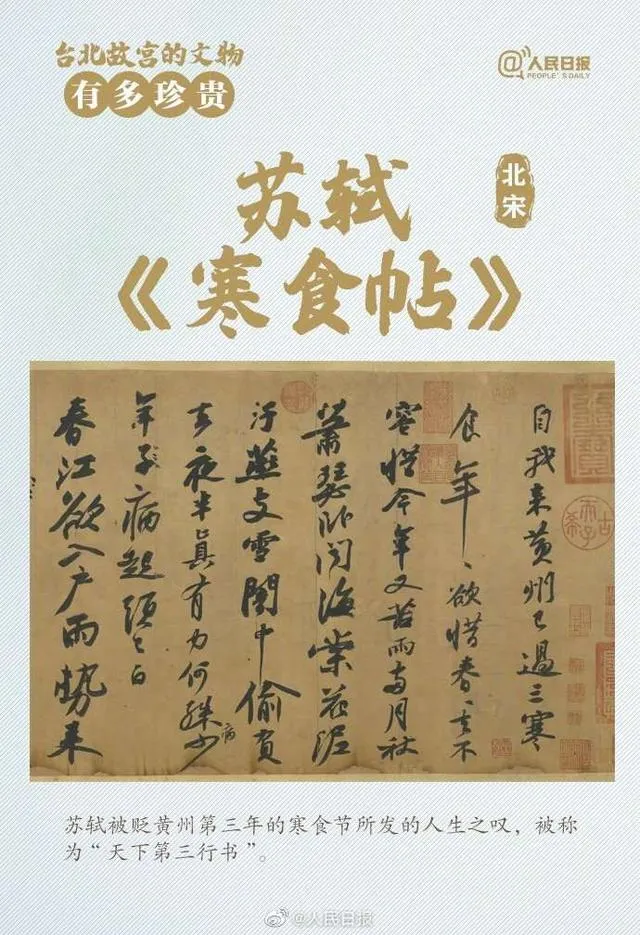 台北故宫的文物
有多珍贵
@人民日报
PEOPLE'S DAILY
苏轼
《寒食帖》
北宋
自我來黃州已過三寒
食年〻欲惜春〻去不
容惜今年又苦雨兩月秋
蕭瑟卧聞海棠花泥
汙燕支雪闇中偷負
去夜半真有力何殊少
病
年子病起頭已白
春江欲入戶雨勢來
古希天子
苏轼被贬黄州第三年的寒食节所发的人生之叹，被称
为“天下第三行书”。
@人民日报